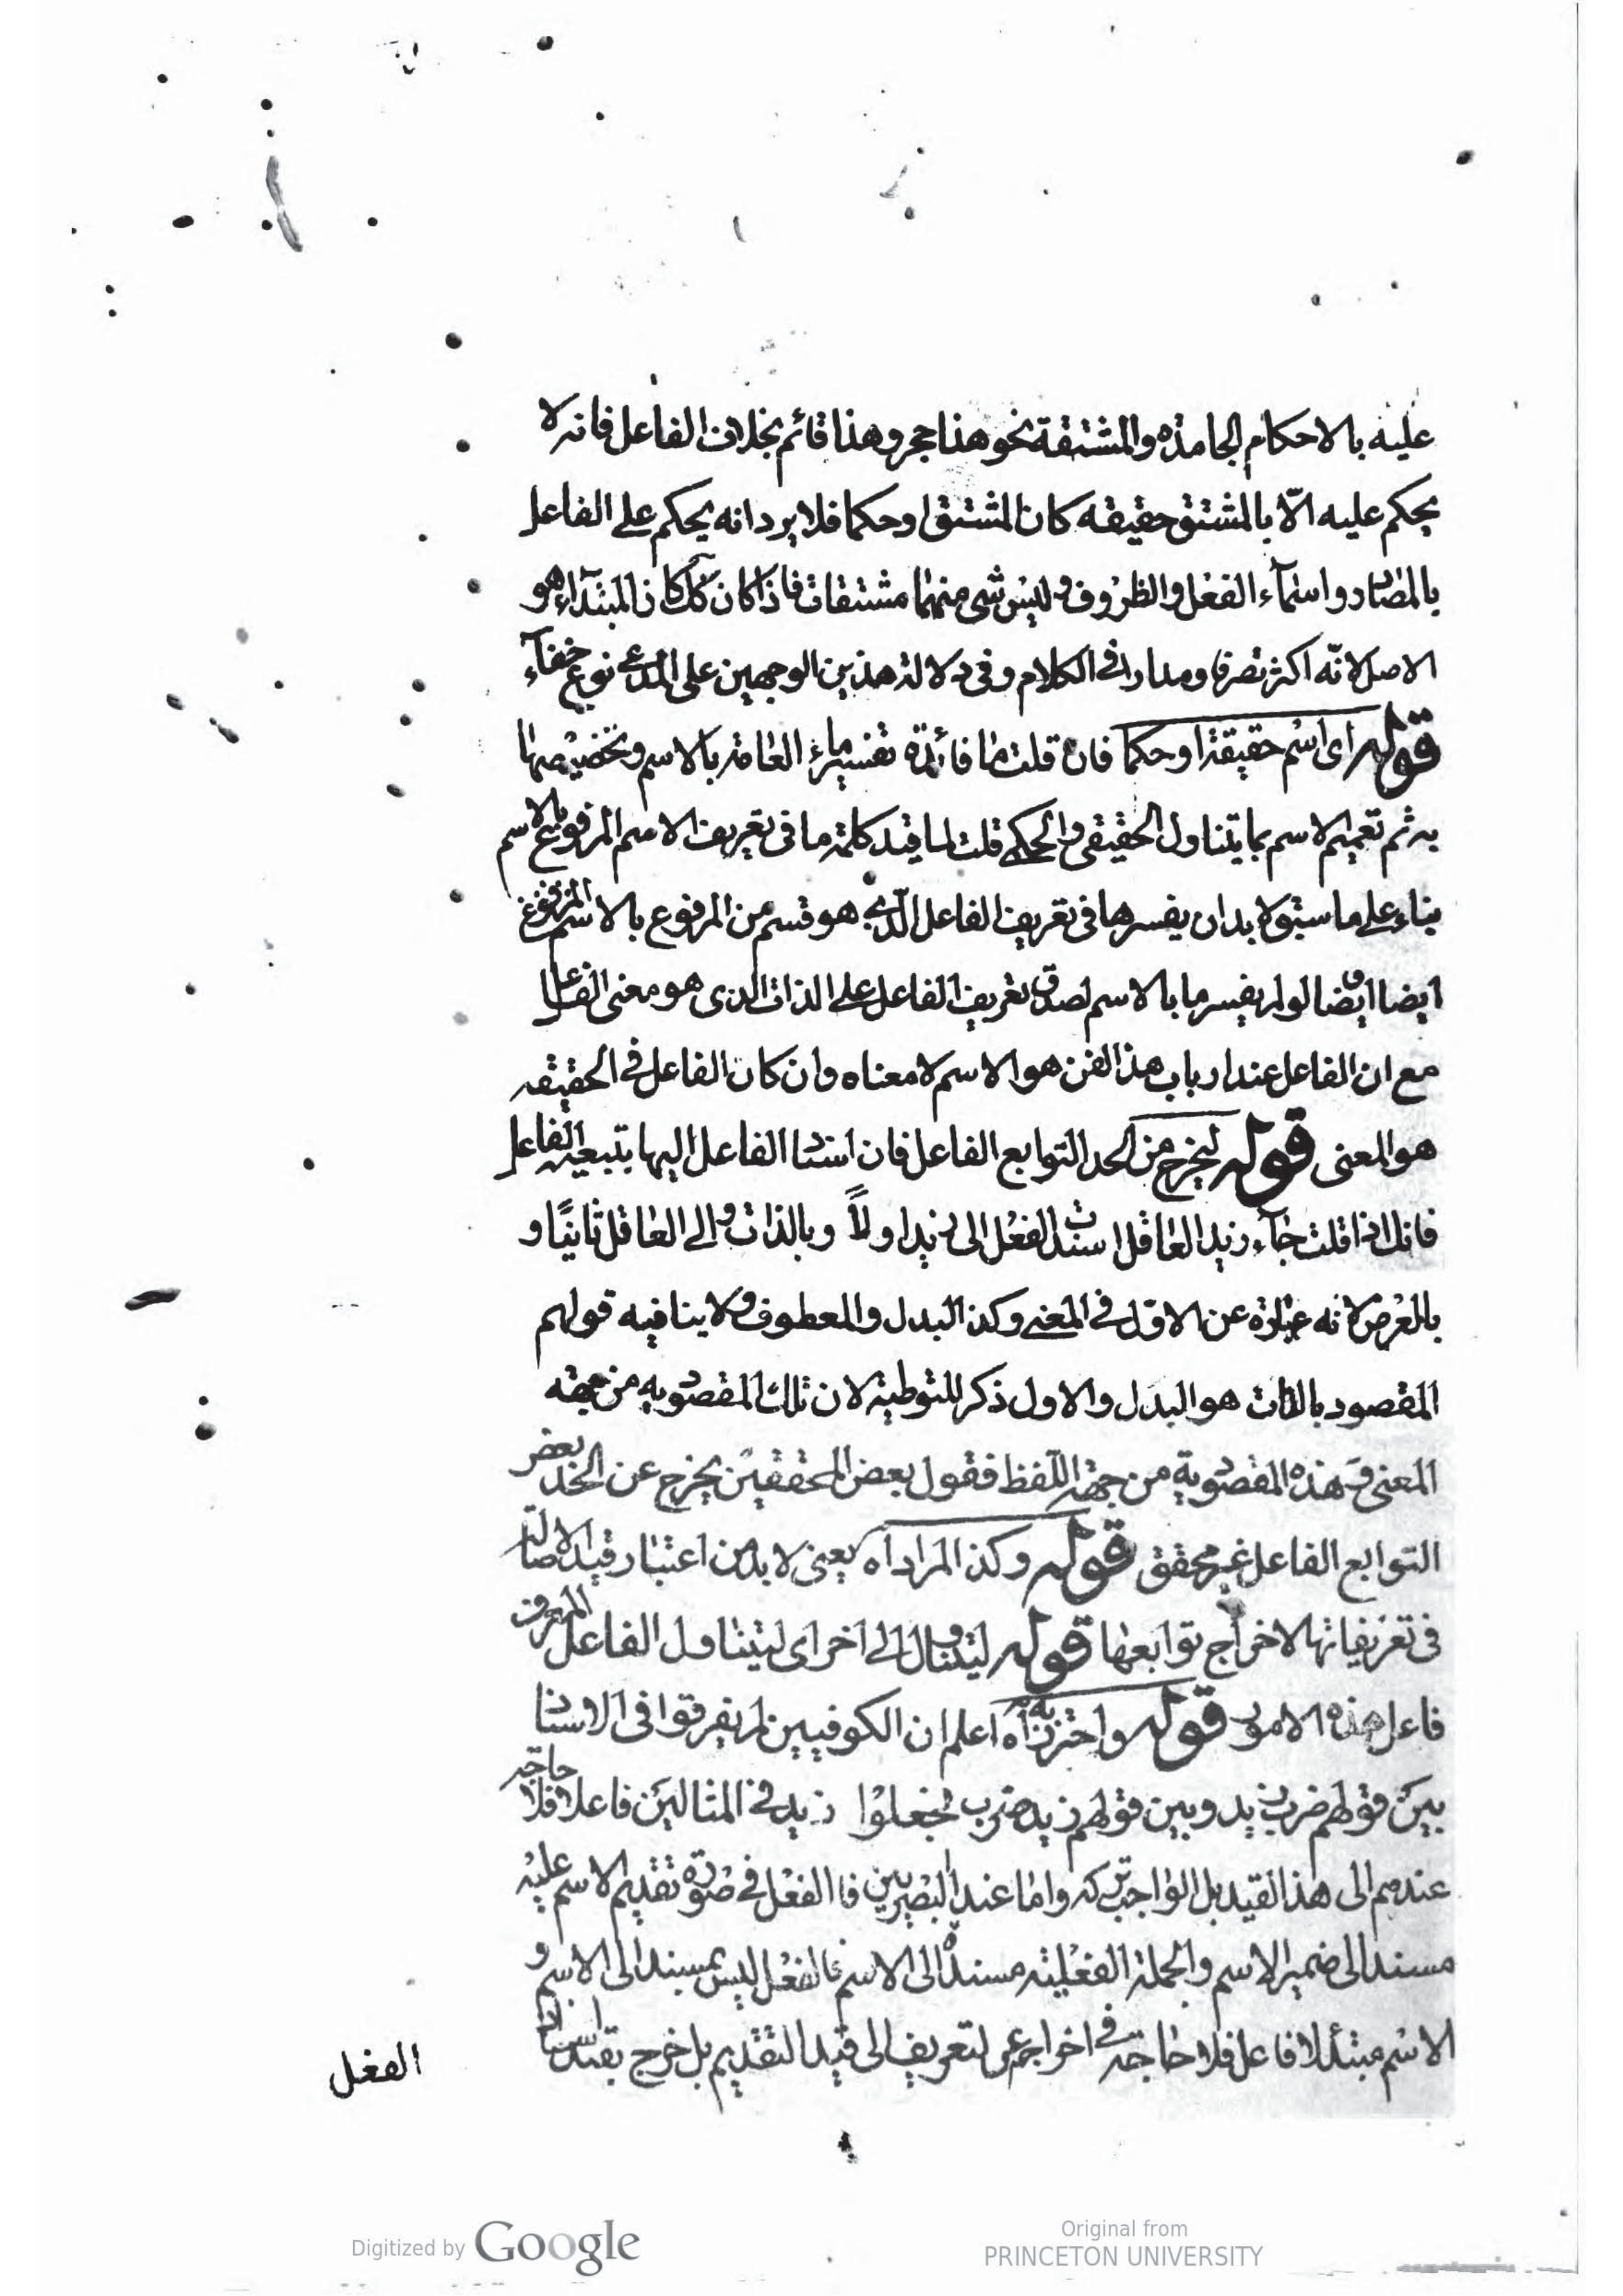 عليه بالاحكام الجامدة والمشتقة نحو هذا حجر وهذا قائم بخلاف الفاعل فانه لا
يحكم عليه الّا بالمشتق حقيقه كان المشتق او حكما فلا يرد انه يحكم على الفاعل
بالمصادر واسمآء الفعل والظروف وليس شى منهما مشتقات فاذا كان كك كان المبتدآء هو
الاصل لانّه اكثر تصرفا ومدارا فى الكلام وفى دلالة هذين الوجهين على المدعى نوع خفآء
قوله اى اسم حقيقة او حكما فان قلت ما فائدة تفسير ماء العامة بالاسم وتخصيصها
به ثم تعميم الاسم بما يتناول الحقيقى والحكمى قلت لما قيد كلمة ما فى تعريف الاسم المرفوع بالاسم
بناء على ما سبق لا بد ان يفسرها فى تعريف الفاعل الّذى هو قسم من المرفوع بالاسم المرفوع
ايضا ايضا لو لم يفسر ما بالاسم لصدق تعريف الفاعل على الذات الذى هو معنى الفاعل
مع ان الفاعل عند ارباب هذا الفن هو الاسم لا معناه وان كان الفاعل فى الحقيقه
هو المعنى قوله ليخرج من الحد التوابع الفاعل فان اسناد الفاعل اليها بتبعية الفاعل
فانك اذا قلت جآء زيد العاقل اسندت الفعل الى زيد اولاً وبالذات والى العاقل ثانيًا و
بالعرض لانه عبارة عن الاوّل فى المعنى وكذا البدل والمعطوف ولا ينافيه قولهم
المقصود بالذات هو البدل والاول ذكر للتوطية لان تلك المقصودية من جهه
المعنى وهذه المقصودية من جهة اللّفظ فقول بعض المحققين يخرج عن الحد بعض
التوابع الفاعل غير محقق قوله وكذا المراد اه يعنى لا بد من اعتبار قيد الاصالة
فى تعريفاتها لاخراج توابعها قوله ليتناول الى اخر اى ليتناول الفاعل المعرف
فاعل هذه الامور قوله واحترز به اه اعلم ان الكوفيين لم يفرقوا فى الاسناد
بين قولهم ضرب زيد وبين قولهم زيد ضرب فجعلوا زيد فى المثالين فاعلا فلا حاجة
عندهم الى هذا القيد بل الواجب تركه واما عند البصريين فا الفعل فى صورة تقديم الاسم عليه
مسند الى ضمير الاسم والجملة الفعلية مسندة الى الاسم فالفعل ليس بمسند الى الاسم و
الاسم مبتدأ لا فاعل فلا حاجة فى اخراجه عن التعريف الى قيد التقديم بل خرج بقيد اسناد
الفعل
Digitized by Google
Original from
PRINCETON UNIVERSITY